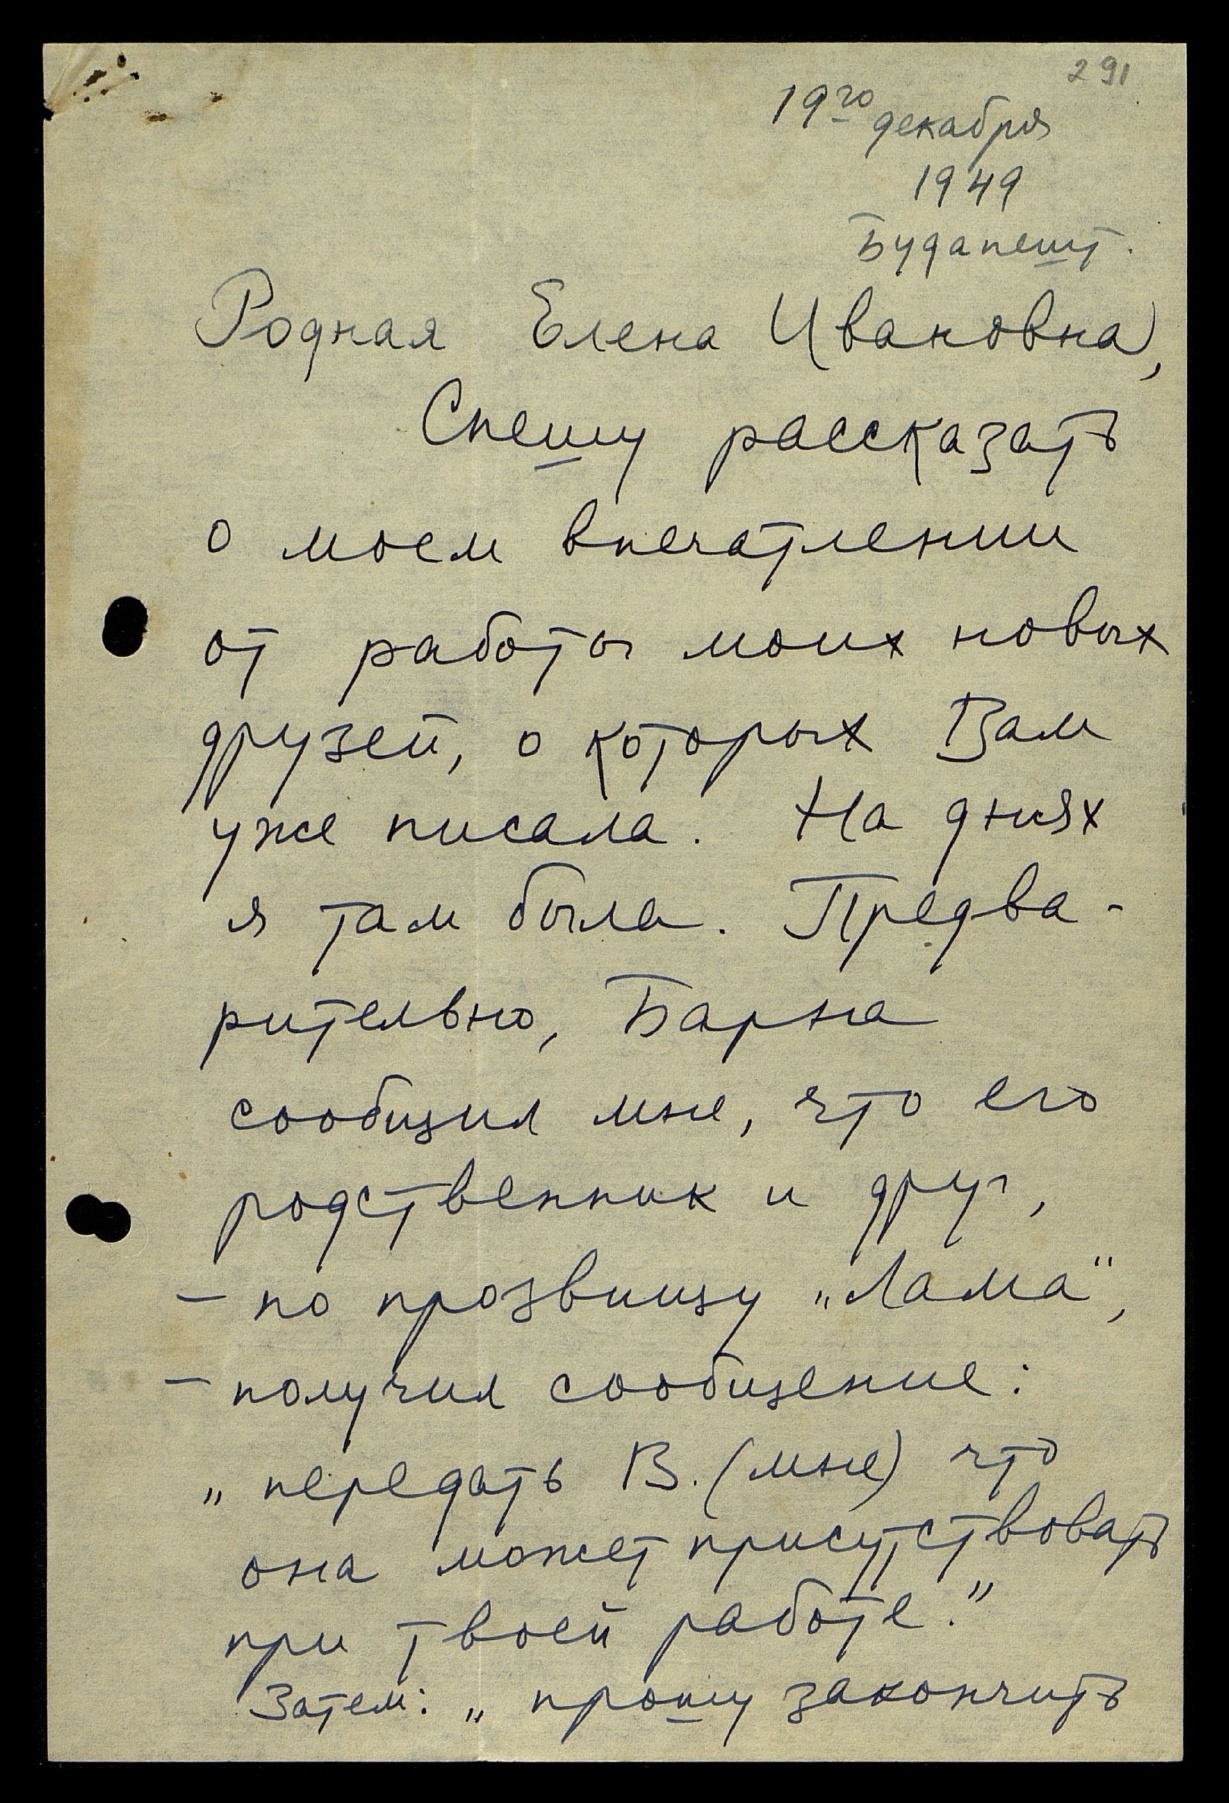 291
19го декабря
1949
Будапешт.
Родная Елена Ивановна,
Спешу рассказать
о моем впечатлении
от работы моих новых
друзей, о которых Вам
уже писала. На днях
я там была. Предва-
рительно, Барна
сообщил мне, что его
родственник и друг,
— по прозвищу „Лама“,
— получил сообщение:
„передать В. (мне) что
она может присутствовать
при твоей работе.”
Затем: „прошу закончить